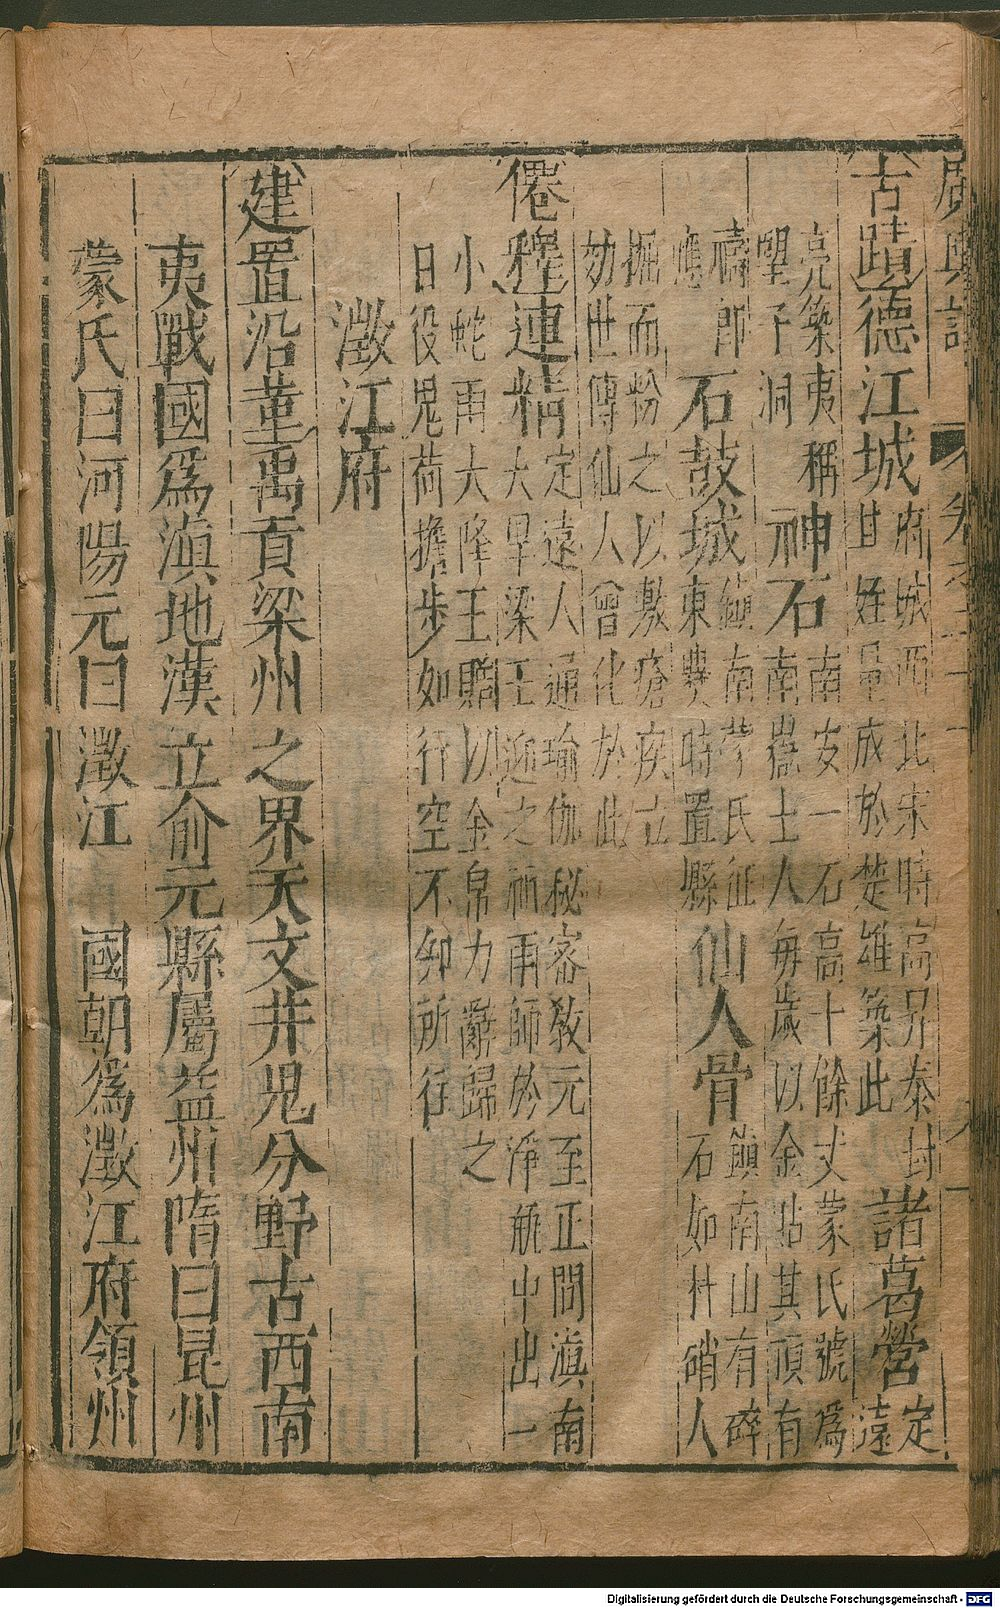 廣輿記
卷之二十一
古蹟德江城府城西北宋時高昇泰封
甘姓量成於楚雄築此諸葛營定
遠
亮築夷稱
望子洞神石南安一石高十餘丈蒙氏號為
南嶽土人每歲以金貼其頂有
禱即
應石鼓城鎮南蒙氏征
東爨時置縣仙人骨鎮南山有碎
石如杵硝人
掘而粉之以敷瘡疾立
効世傳仙人會化於此
僊釋連精定遠人通瑜伽秘密敎元至正間滇南
大旱梁王迎之祈雨師於淨瓶中出一
小蛇雨大降王贈以金帛力辭歸之
日役鬼荷擔步如行空不卸所往
澂江府
建置沿革禹貢梁州之界天文井鬼分野古西南
夷戰國爲滇地漢立俞元縣屬益州隋曰昆州
蒙氏曰河陽元曰澂江國朝爲澂江府領州
Digitalisierung gefördert durch die Deutsche Forschungsgemeinschaft - DFG